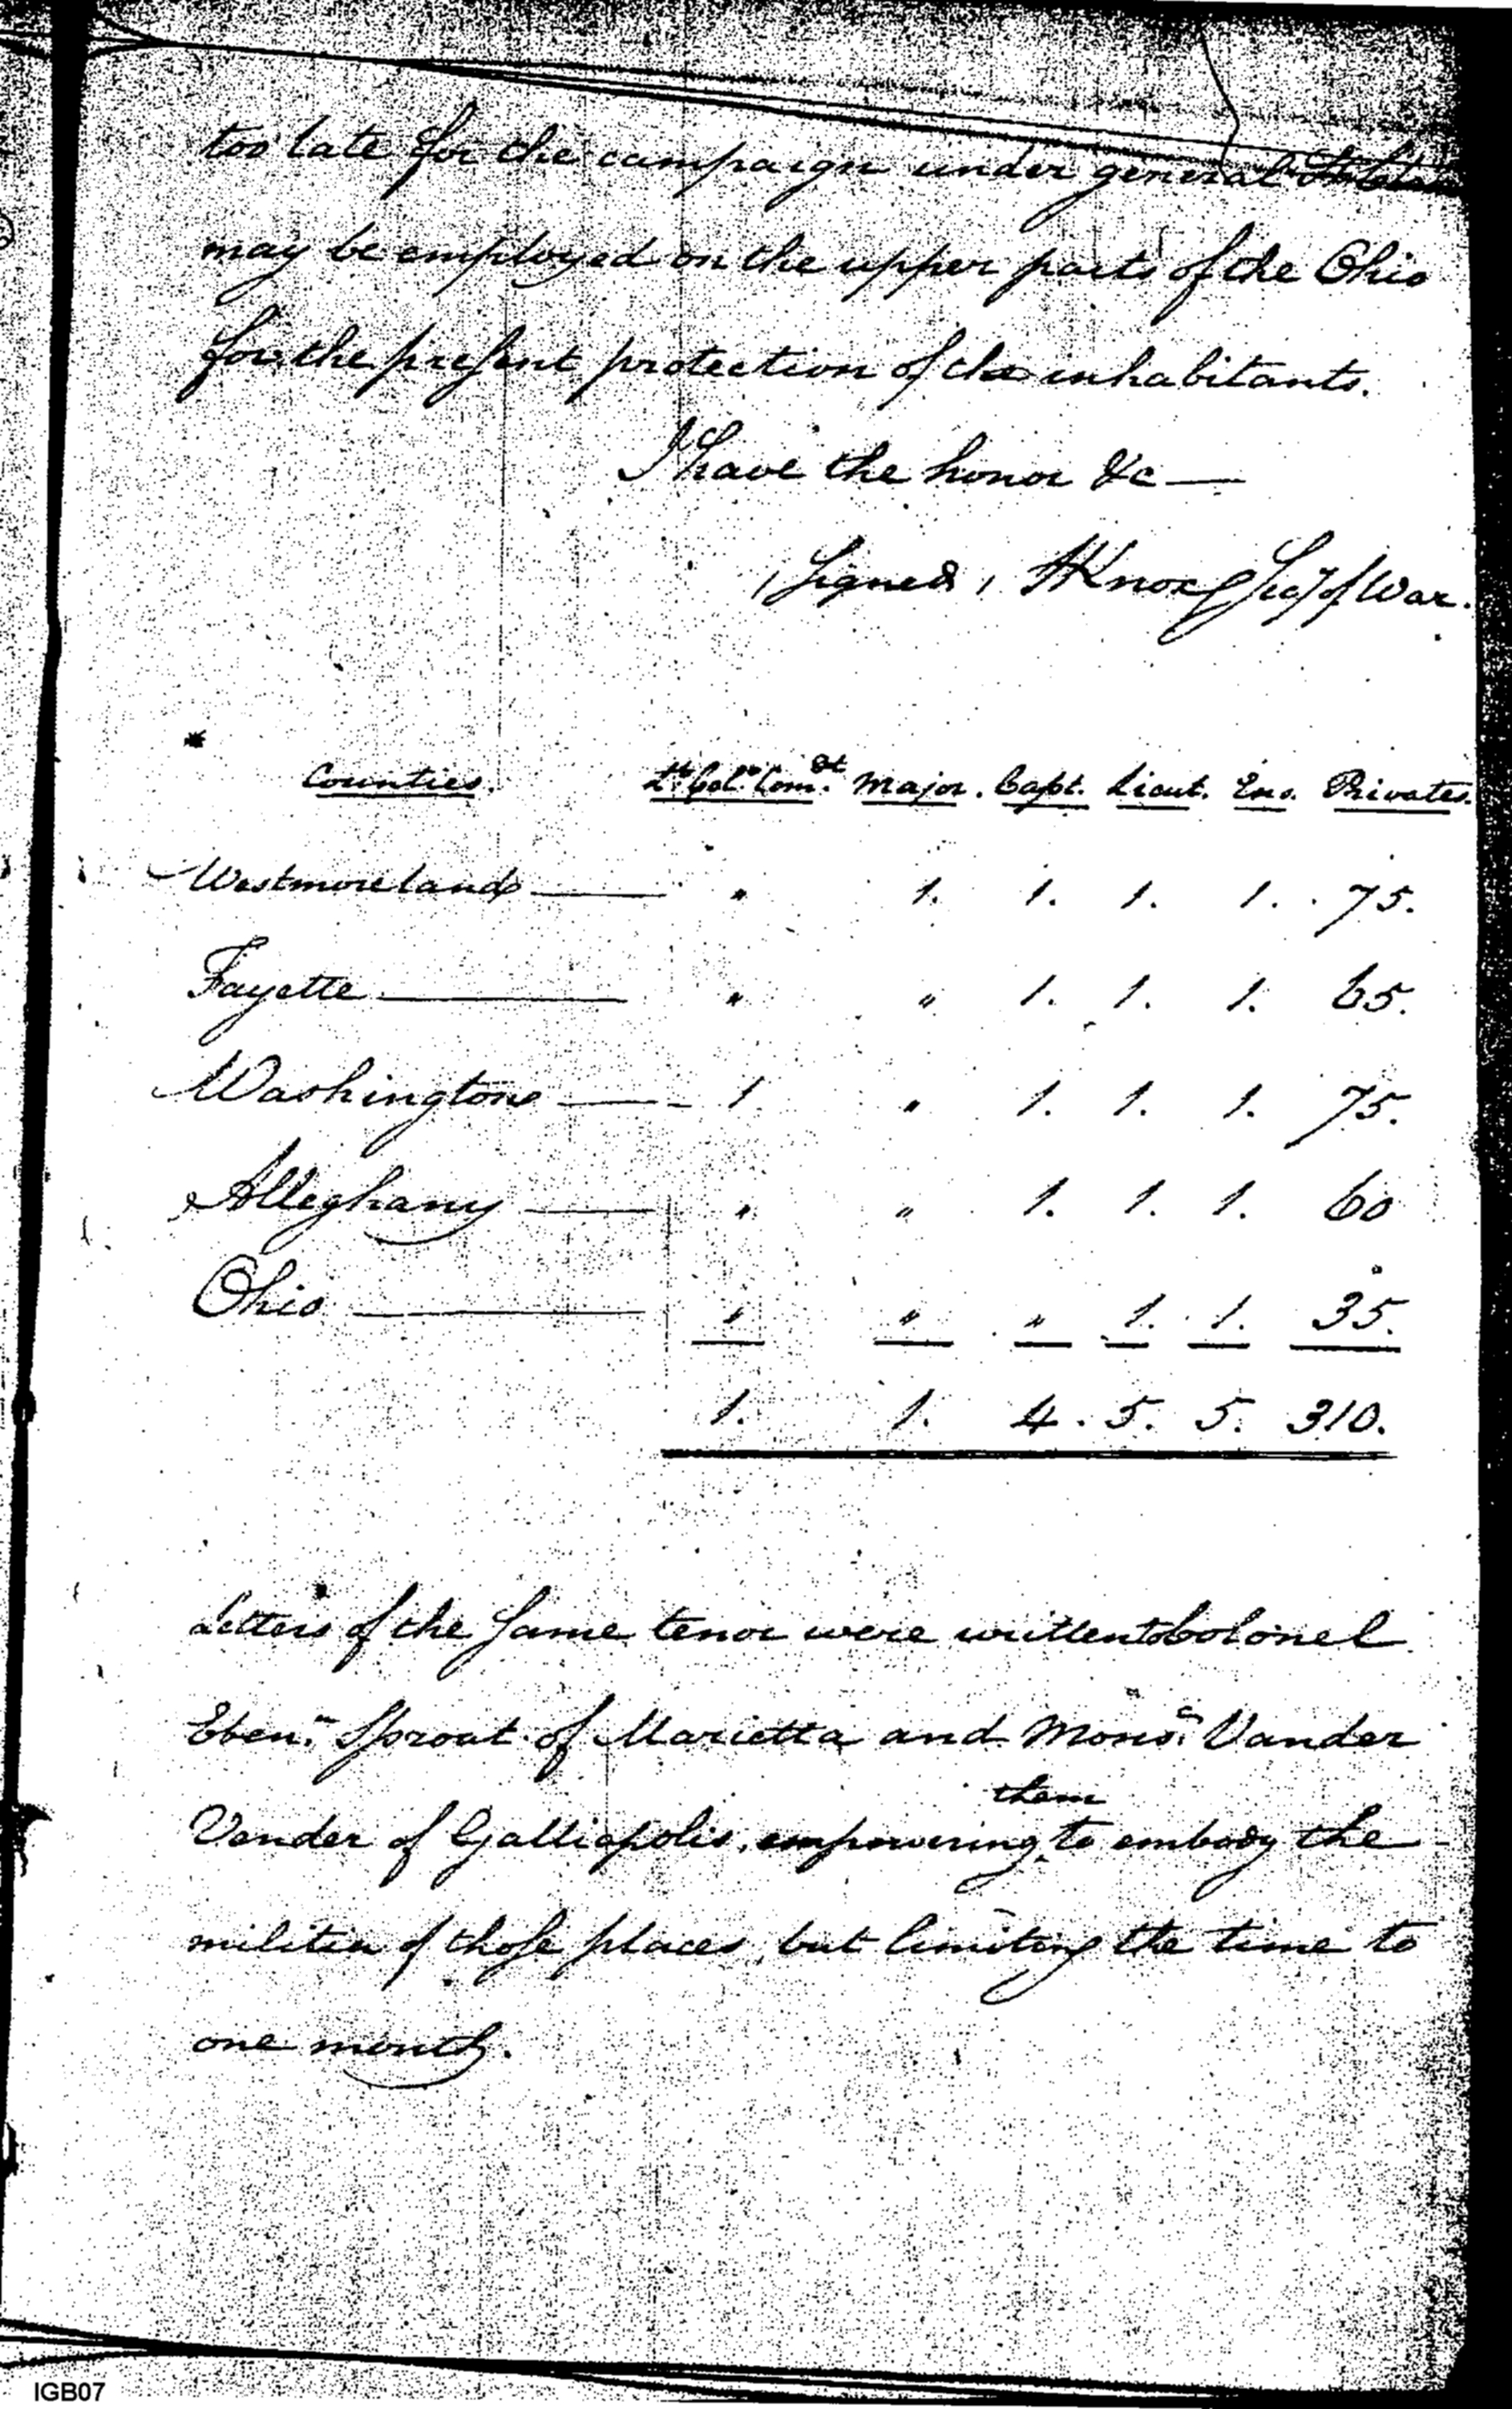 too late for the campaign under general St Clair
may be employed on the upper parts of the Ohio
for the present protection of the inhabitants.
I have the honor &c —
(Signed) HKnox Secy of War.
*
Counties. Lt. Col. Comdt. Major. Capt. Lieut. Ens. Privates.
Westmoreland — " 1. 1. 1. 1. 75.
Fayette — " " 1. 1. 1. 65.
Washington — 1 " 1. 1. 1. 75.
Alleghany — " " 1. 1. 1. 60
Ohio — " " " 1. 1. 35.
1. 1. 4. 5. 5. 310.
Letters of the same tenor were written to Colonel
Ebenr. Sproat of Marietta and Monsr. Vander
them
Vender of Galliopolis, empowering to embody the
militia of those places, but limiting the time to
one month.
IGB07